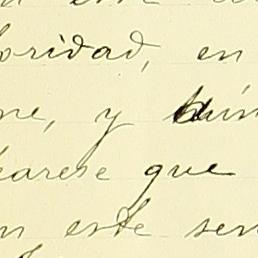 oridad, en
ne, y
earese que
n este sen